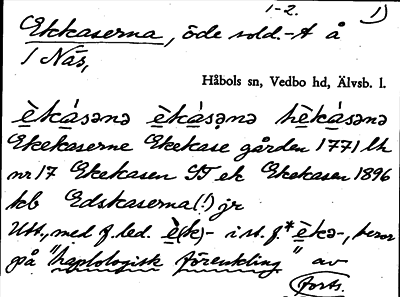 1-2. 1)
Ekkaserna, öde sold.-t å
1 Näs,
Håbols sn, Vedbo hd, Älvsb. l.
ὲkásənə ὲkásənə hὲkásənə
Ekekaserne Ekekase gården 1771 lh
nr 17 Ekekasen ST ek Ekekasen 1896
kb Edskaserna(!) jr
Utt., med f. led. ὲ(k)- i st. f. *ὲkə-, beror
på "haplologisk förenkling" av
(forts.